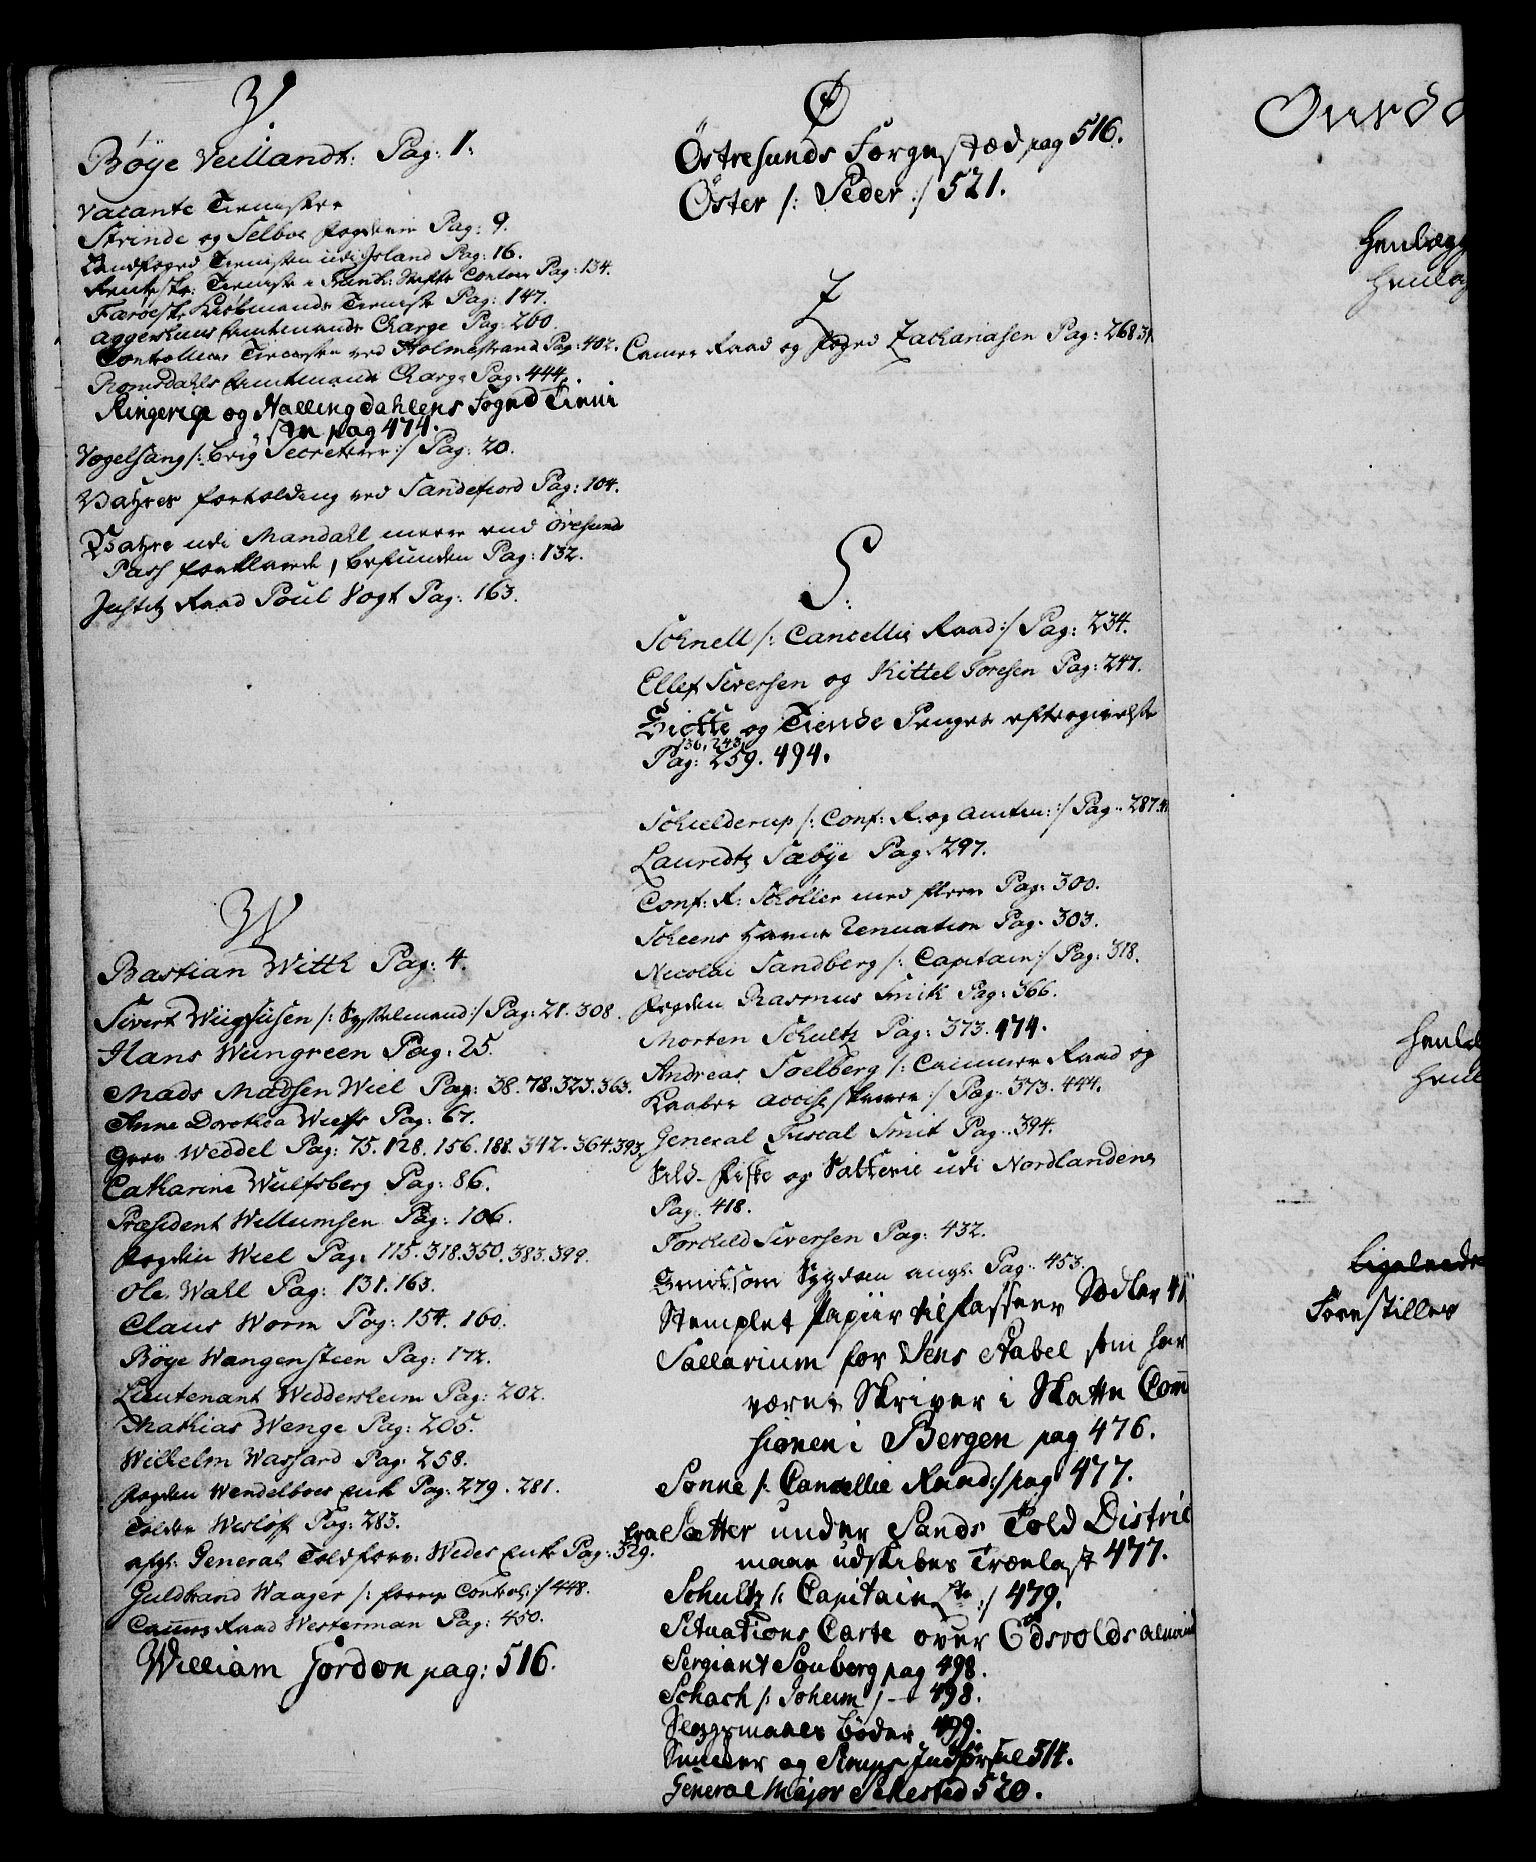 V.
Bøye Veillandt: Pag: 1:
Vacante Tienister
Strinde og Selboe fogderie Pag: 9.
Landfoged Tienisten udi Island Pag: 16.
Tieniste i Contoir Pag: 134.
Færoeske Kiøbmands Tieniste Pag: 147.
Aggershuus Amtmands Charge Pag: 260.
Controleur Tienisten ved Holmestrand Pag: 402.
Romsdahls Amtmands Charge Pag: 444.
Ringerige og Hallingdahlens Foged Tieni
sten pag 474.
Vogelsang /: Krig Secreterer :/ Pag: 20.
Vahres fortolding ved Sandefiord Pag: 104.
Vahre udi Mandahl meere end Øresunds
Pass forklarede, befunden Pag: 132.
Justitz Raad Poul Vogt Pag: 163.
W
Bastian Witth Pag: 4.
Sivert Wiigfusen /: Sysselmand :/ Pag: 21. 308.
Hans Wungreen Pag: 25.
Mads Madsen Wiel Pag: 38. 78. 323. 363.
Anne Dorothea Pag: 67.
Weddel Pag: 75. 128. 156. 188. 342. 364. 393.
Catharine Wulfsberg Pag: 86.
Præsident Willumsen Pag: 106.
Fogden Wiel Pag: 115. 318. 350. 383. 399.
Ole Wahl Pag: 131. 163.
Claus Worm Pag: 154. 160.
Bøye Wangensteen Pag: 172.
Lieutenant Weddersheim Pag: 202.
Mathias Wenge Pag: 205.
Wilhelm Wassard Pag: 258.
Fogden Wendelboes Enke Pag: 279. 281.
Tolder Wesløf Pag: 283.
afg: General Toldforv: Wedes Enke Pag: 329.
Guldbrand Waager /: Control: :/ 448.
Camer Raad Westerman Pag: 450.
William Jordon pag: 516.
Ø
Østresunds Færgestæd pag 516.
Øster /: Peder :/ 521.
Z
Camer Raad og foged Zachariasen Pag: 268.
S.
Schnell /: Cancellie Raad :/ Pag: 234.
Ellef Siversen og Kittel Toresen Pag: 247.
og Tiende Penges eftergivelse
136. 243.
Pag: 259. 494.
Schielderup /: Conf: R: og Amtm: :/ Pag: 287.
Lauridtz Sæbye Pag: 297.
Conf: R: Schøller med fleere Pag: 300.
Scheens Pag: 303.
Nicolai Sandberg /: Capitain :/ Pag: 318.
Fogden Rasmus Smith Pag: 366.
Morten Schultz Pag: 373. 474.
Andreas Soelberg /: Cammer Raad og
:/ Pag: 373. 444.
General Fiscal Smit Pag: 394.
Sild-fiske og Salterie udi Nordlandene
Pag: 418.
Torchild Siversen Pag: 432.
ang: Pag: 453.
Stemplet Papiir til Passeer Sedler
Sallarium for Jens Stabel som har
været Skriver i Skatte Com
sionen i Bergen pag 476.
Sonne /: Cancellie Raad :/ pag 477.
fra Sætter under Sands Told District
maae udskibes Trælast 477.
Schultz /: Capitain :/ 479.
Situations Carte over Edsvolds
Sergiant Souberg pag 498.
Schach /: Joheim :/ — 498.
bøder 499.
og Indførsel 514.
General Major Sehested 520.
henlegg
Forestilles